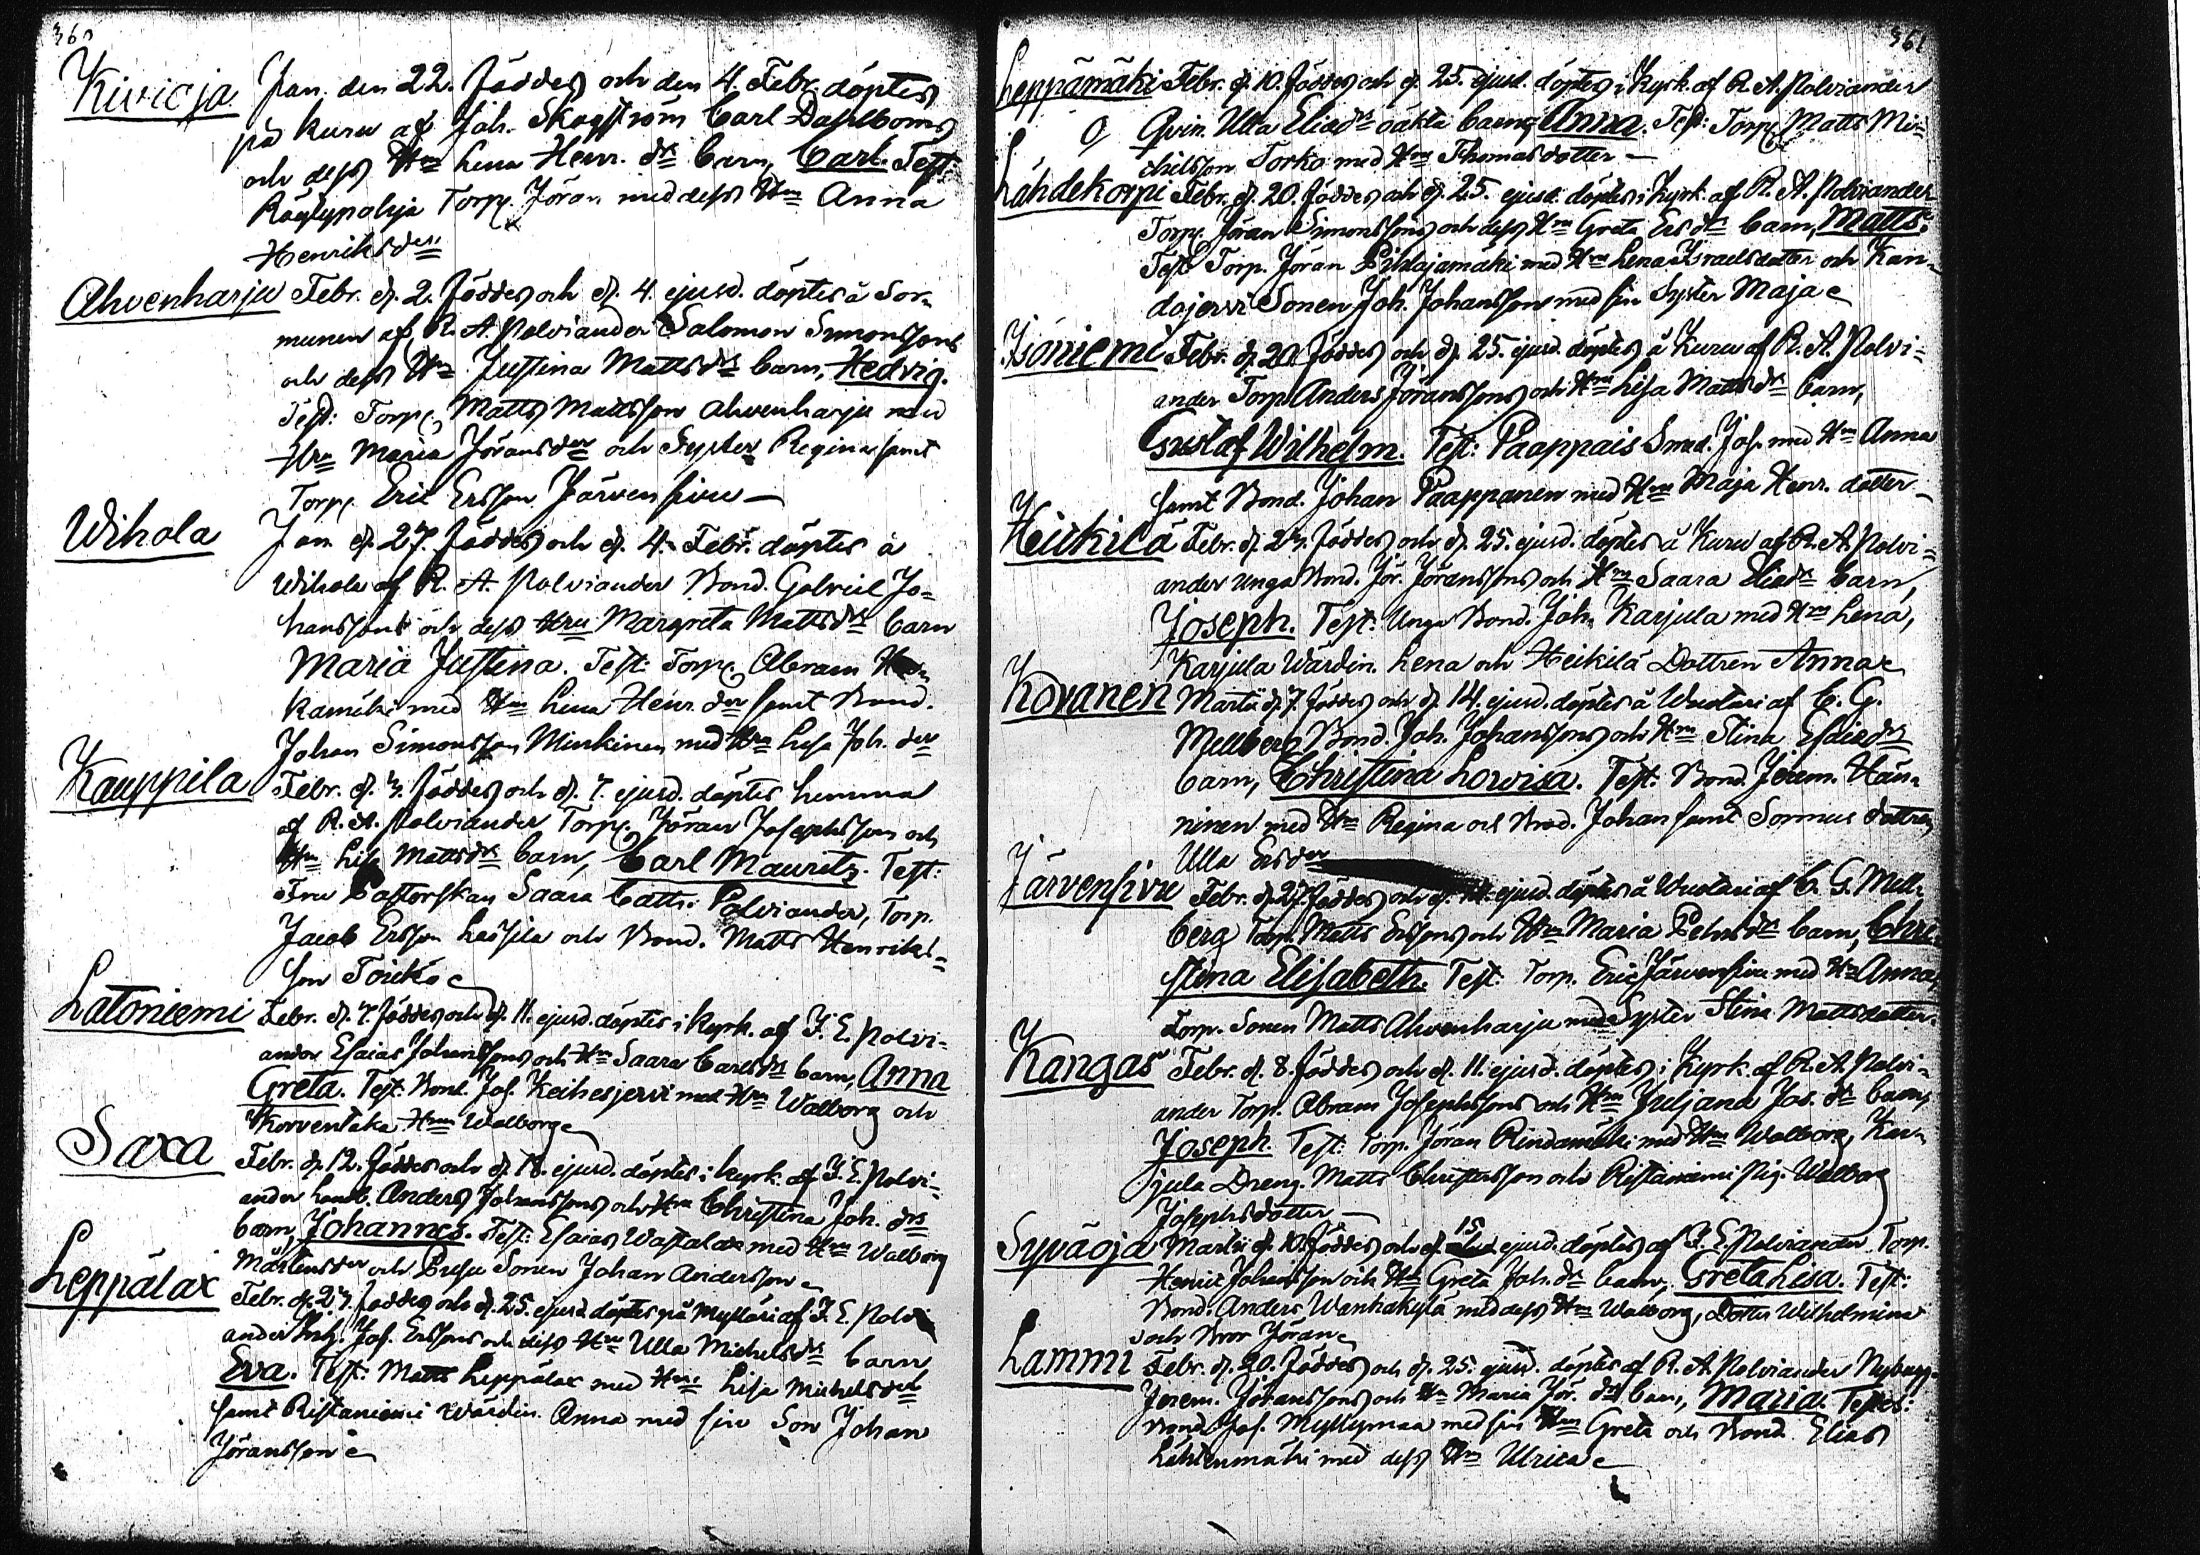 360
Kivioja Jan. den 22. föddes och den 4. Febr. döptes
på Kuru af Joh. Skogström Carl Dahlboms
och dess Hu Lena Henr. dr barn, Carl. Test:
Röyhypohja Torp. Jöran med dess Hu Anna
Henriksdr
Ahvenharju Febr. d. 2. föddes och d. 4. ejusd. döptes å Sor-
munen af R. A. Polviander Salomon Simonssons
och dess Hu Justina Mattsdr barn, Hedvig.
Test: Torp. Matts Mattsson Ahvenharju med
Hru Maria Jöransdr och Syster Regina samt
Torp. Eric Ersson Järvensivu
Wihola Jan d. 27. föddes och d. 4. Febr. döptes å
Wihola af R. A. Polviander Bond. Gabriel Jo-
hanssons och dess Hru Margreta Mattsdr barn
Maria Justina. Test: Torp. Abram
kamäki med Hu Lena Henr. dr samt Bond.
Johan Simonsson Minkinen med Hru Lisa Joh. dr
Kauppila Febr. d. 3. föddes och d. 7. ejusd. döptes hemma
af R. A. Polviander Torp. Jöran Josephsson och
Hu Lisa Mattsdr barn, Carl Mauritz. Test:
Fru Pastorskan Saara Cath. Polviander, Torp.
Jacob Ersson Lassila och Bond. Matts Henriks-
son Toicko
Latoniemi Febr. d. 7. föddes och d. 11. ejusd. döptes i kyrk. af J. E. Polvi-
ander Esaias Johanssons och Hu Saara Carlsdr barn, Anna
Greta. Test: Bond. Jos. Keihesjervi med Hu Walborg och
Korventaka Hru Walborg
Saxa Febr. d. 12. föddes och d. 18. ejusd. döptes i kyrk. af J. E. Polvi-
ander Landb. Anders Johanssons och Hu Christina Joh. drs
barn, Johannes. Test: Esaias Wastalax med Hu Walborg
Mårtensdr och Pusu Sonen Johan Andersson
Leppälax Febr. d. 23. föddes och d. 25. ejusd. döptes på Mylläri af J. E. Polvi
ander Jos. Erssons och dess Hu Ulla Michelsdr barn
Eva. Test: Matts Leppälax med Hu Lisa Michelsdr
samt Ristaniemi Wärdin. Anna med sin Son Johan
Jöransson
361
Leppämäki Febr. d. 10. föddes och d. 25. ejusd. döptes i kyrk. af R. A. Polviander
O Qvin. Ulla Eliædr oäkta barn, Anna. Test: Torp. Matts Mi-
chelsson Torko med Hu Thomasdotter
Lähdekorpi Febr. d. 20. föddes och d. 25. ejusd. döptes i kyrk. af R. A. Polviander
Torp. Jöran Simonssons och dess Hu Greta Ersdr barn, Matts.
Test: Torp. Jöran Pihlajamäki med Hu Lena Israelsdotter och Kan-
dojervi Sonen Joh. Johansson med sin Syster Maja
Isoniemi Febr. d. 20. föddes och d. 25. ejusd. döptes å Kuru af R. A. Polvi-
ander Torp. Anders Jöranssons och Hu Lisa Mattsdr barn,
Gustaf Wilhelm. Test: Paappais Smed. Jos. med Hu Anna
samt Bond. Johan Paappanen med Hu Maja Henr. dotter
Heickilä Febr. d. 23. föddes och d. 25. ejusd. döptes å Kuru af R. A. Polvi-
ander unga Bond. Jör. Jöranssons och Hu Saara Eliædr barn,
Joseph. Test: Unga Bond. Joh. Karjula med Hu Lena,
Karjula Wärdin. Lena och Heikilä Dottren Anna
Kovanen Martii d. 7. föddes och d. 14. ejusd. döptes å Wustari af C. G.
Mellberg Bond. Joh. Johanssons och Hu Stina Esaiædr
barn, Christina Lovisa. Test: Bond. Jerem. Hän-
ninen med Hu Regina och Bond. Johan samt Sormus dottren
Ulla Ersdr
Järvensivu Febr. d. 27. föddes och d. 14. ejusd. döptes å Wustari af C. G. Mell-
berg Torp. Matts Erssons och Hu Maria Petersdr barn, Chri-
stina Elisabeth. Test: Torp. Eric Järvensivu med Hu Anna,
Torp. Sonen Matts Ahvenharju med Syster Stina Mattsdotter
Kangas Febr. d. 8. föddes och d. 11. ejusd. döptes i kyrk. af R. A. Polvi-
ander Torp. Abram Josephssons och Hu Juljana Jos. dr barn,
Joseph. Test: Torp. Jöran Rindamäki med Hu Walborg, Kar-
jula Dreng. Matts Christersson och Ristaniemi Pig. Walborg
Josephsdotter
Syväoja Martii d. 10. föddes och d. 15 ejusd. döptes af J. E. Polviander Torp.
Henric Johansson och Hu Greta Joh. dr barn, Greta Lisa. Test:
Bond. Anders Wanhakylä med dess Hu Walborg, Dotter Wilhelmina
och Bror Jöran
Lammi Febr. d. 20. föddes och d. 25. ejusd. döptes af R. A. Polviander Nybygg.
Jerem. Jöranssons och Hu Maria Jör. dr barn, Maria. Testes:
Bond. Jos. Myllymaa med sin Hu Greta och Bond. Elias
Lähtenmäki med dess Hu Ulrica